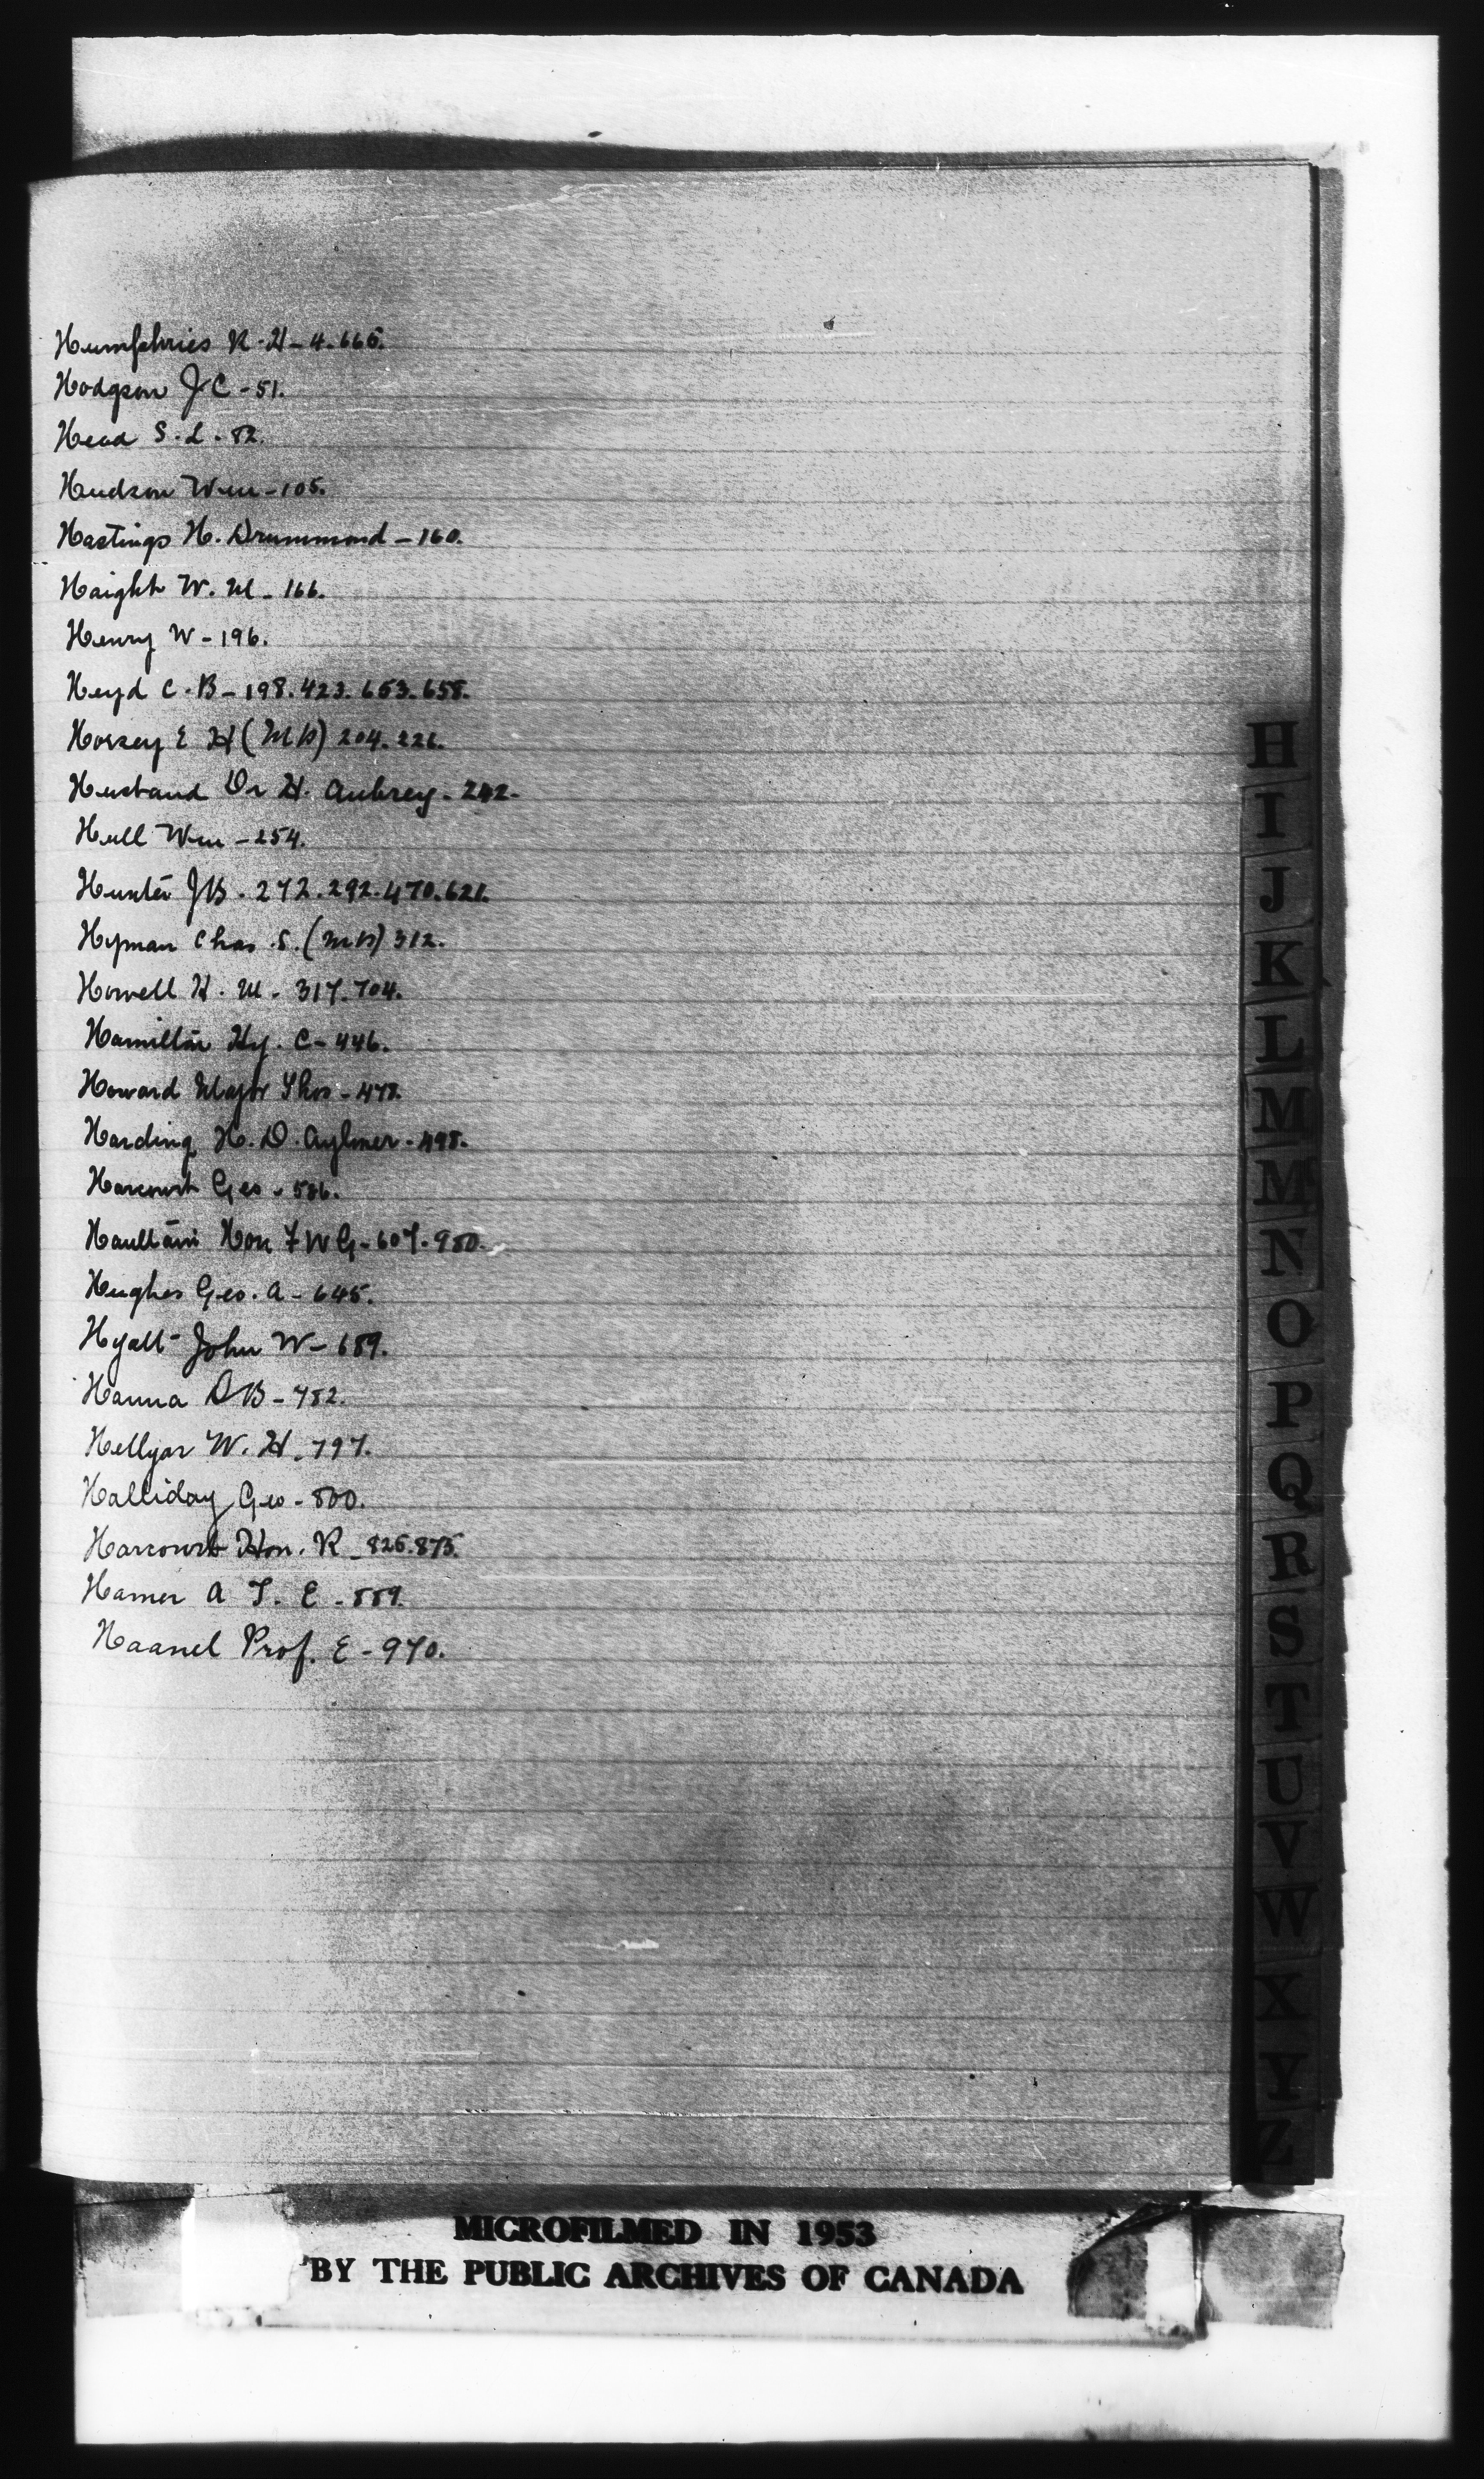 Humphries R. H - 4. 665.
Hodgson J C - 51.
Head S. L. 82.
Hudson Wm - 105.
Hastings H. Drummond - 160.
Haight W. M - 166.
Henry W - 196.
Heyd C. B - 198. 423. 653. 658.
Horsey E H (M P) 204. 226.
Husband Dr H. Aubrey - 242 -
Hull Wm - 254.
Hunter J B - 272. 292. 470. 621.
Hyman Chas. S. (M P) 312.
Howell H. M - 317. 704.
Hamilton Hy. C - 446.
Howard Major Thos - 478.
Harding H. D. Aylmer - 498.
Harcourt Geo - 586.
Haultain Hon F W G - 607. 980.
Hughes Geo. A - 645.
Hyatt John W - 689.
Hanna D B - 782.
Hellyar W. H. 797.
Halliday Geo - 800.
Harcourt Hon. R - 825. 875.
Hamer A T. E - 889.
Haanel Prof. E - 970.
H
I
J
K
L
M
Mc
N
O
P
Q
R
S
T
U
V
W
X
Y
Z
MICROFILMED IN 1953
BY THE PUBLIC ARCHIVES OF CANADA